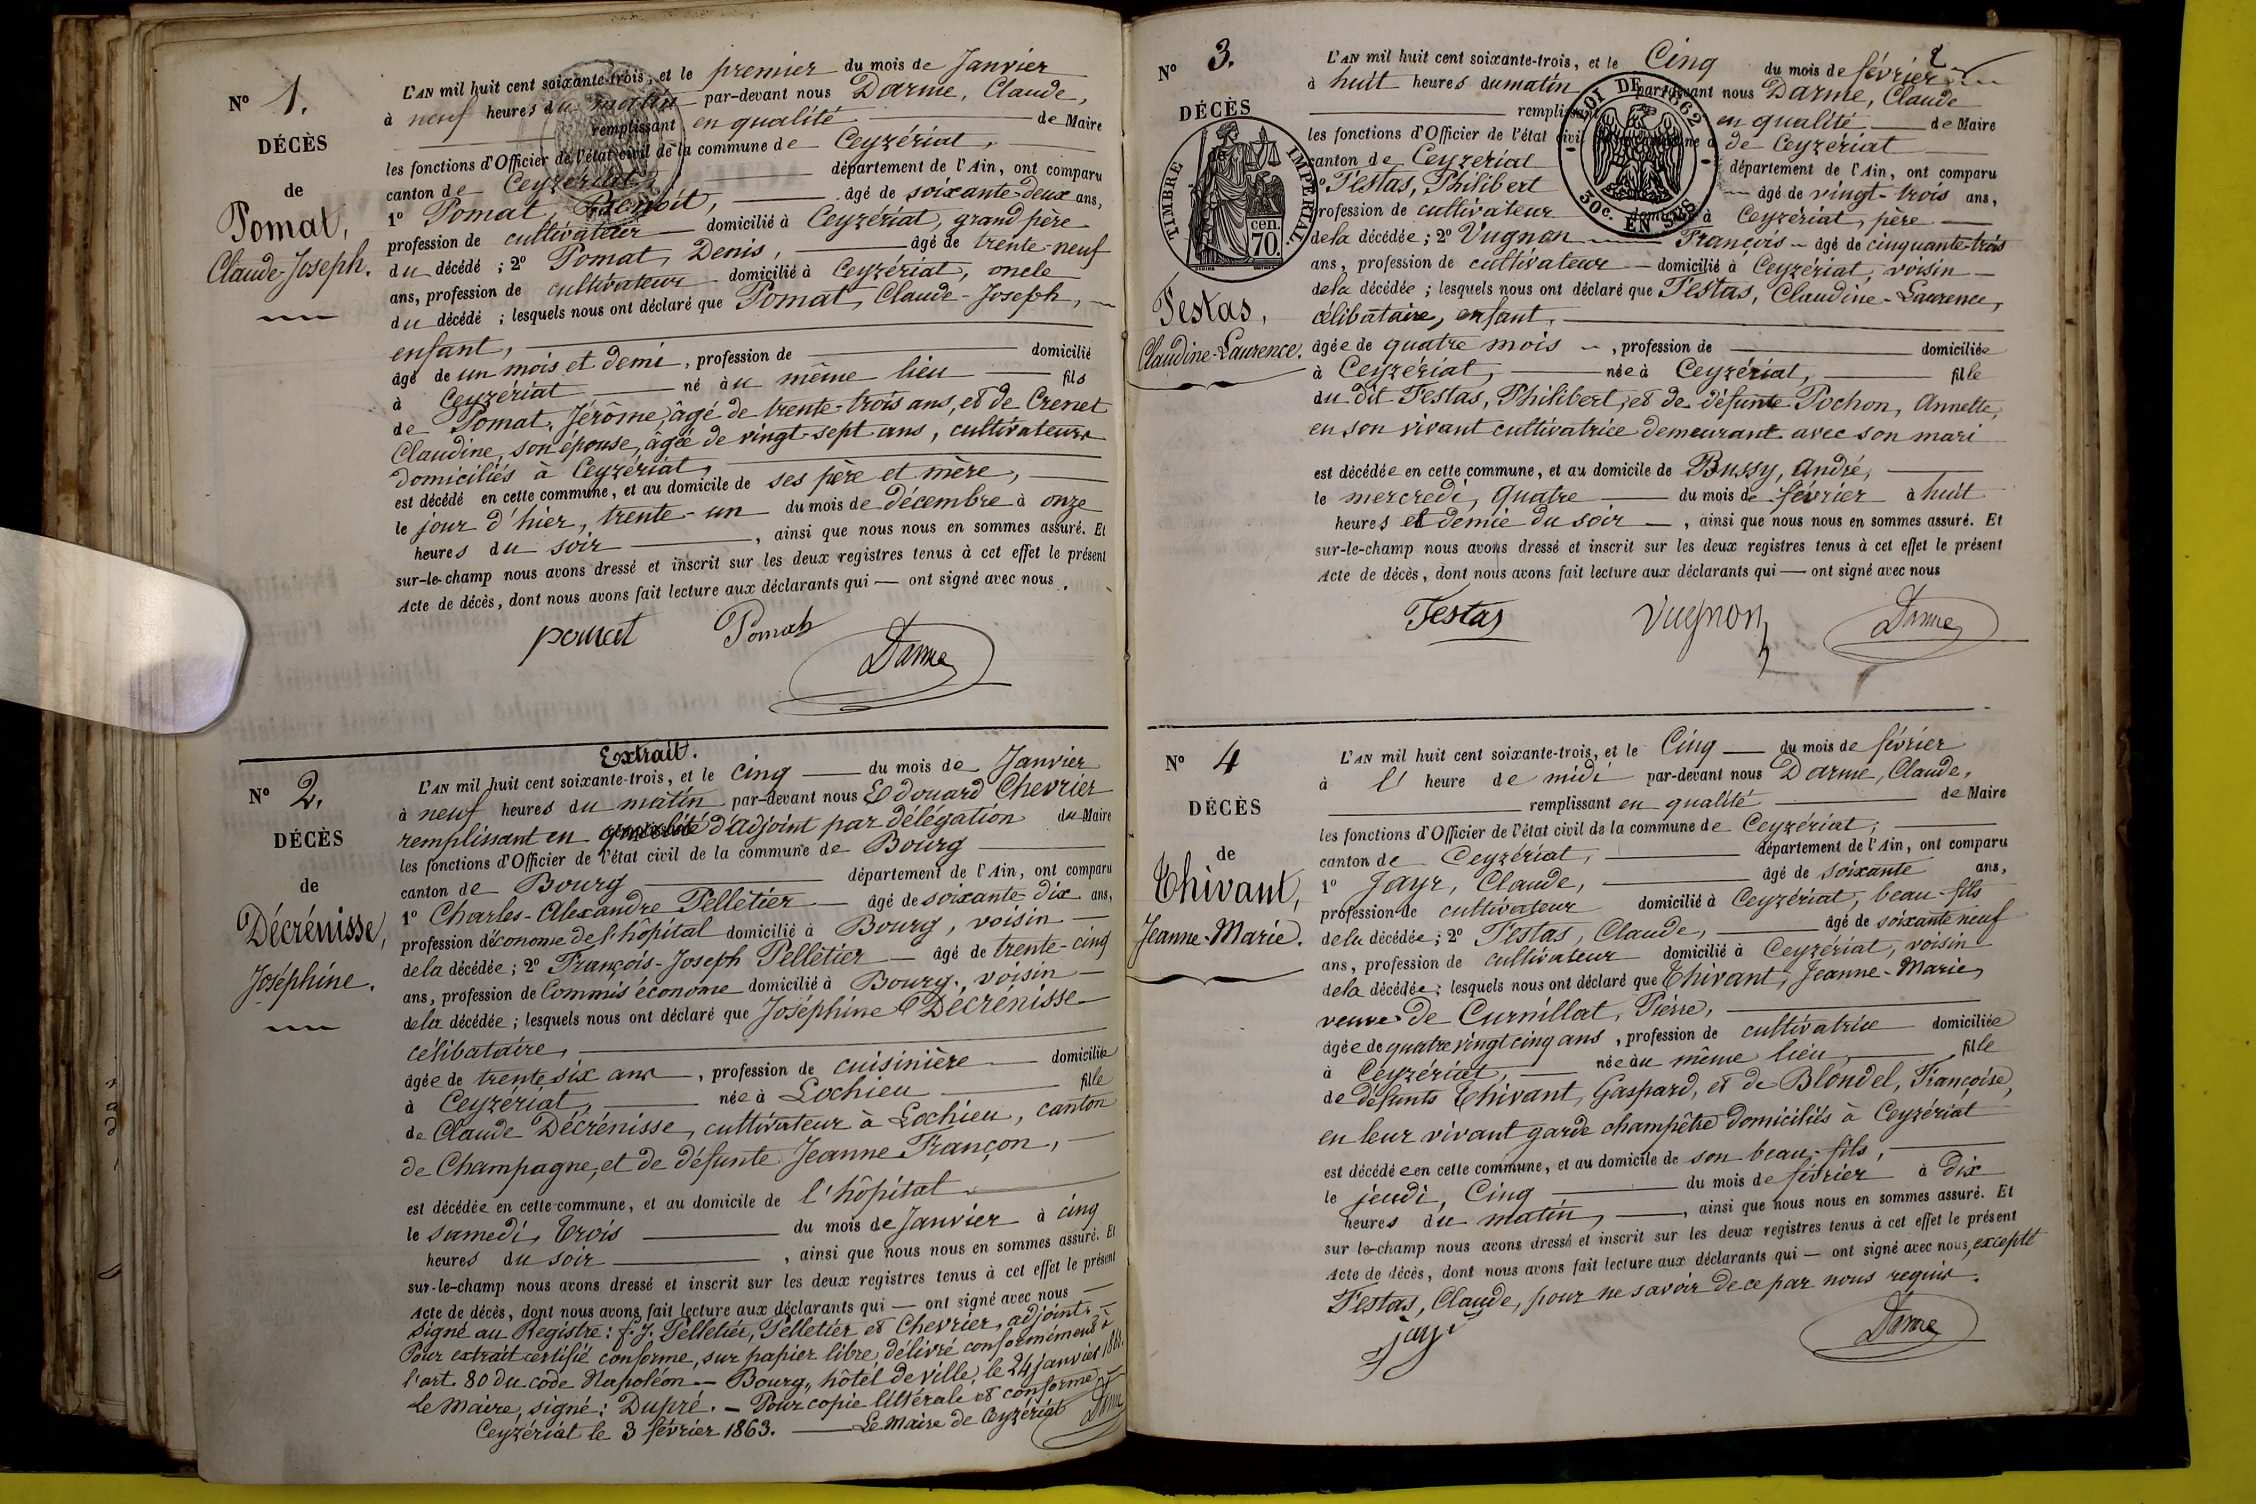 N° 1.
DÉCÈS
de
Pomat,
Claude-Joseph.
L'AN mil huit cent soixante-trois, et le premier du mois de Janvier
à neuf heures du matin par-devant nous Darme, Claude,
remplissant en qualité de Maire
les fonctions d'Officier de l'état civil de la commune de Ceyzériat,
canton de Ceyzériat, département de l'Ain, ont comparu
1° Pomat, Benoit, âgé de soixante-deux ans,
profession de cultivateur domicilié à Ceyzériat, grand père
du décédé ; 2° Pomat, Denis, âgé de trente-neuf
ans, profession de cultivateur domicilié à Ceyzériat, oncle
du décédé ; lesquels nous ont déclaré que Pomat, Claude-Joseph,
enfant,
âgé de un mois et demi, profession de domicilié
à Ceyzériat né au même lieu fils
de Pomat, Jérôme, âgé de trente-trois ans, et de Crenet
Claudine, son épouse, âgée de vingt-sept ans, cultivateurs
domiciliés à Ceyzériat,
est décédé en cette commune, et au domicile de ses père et mère,
le jour d'hier, trente-un du mois de décembre à onze
heures du soir, ainsi que nous nous en sommes assuré. Et
sur-le-champ nous avons dressé et inscrit sur les deux registres tenus à cet effet le présent
Acte de décès, dont nous avons fait lecture aux déclarants qui — ont signé avec nous.
Pomat
Darme
N° 2.
DÉCÈS
de
Décrénisse,
Joséphine.
Extrait.
L'AN mil huit cent soixante-trois, et le cinq du mois de Janvier
à neuf heures du matin par-devant nous Edouard Chevrier
remplissant en qualité d'adjoint par délégation du Maire
les fonctions d'Officier de l'état civil de la commune de Bourg
canton de Bourg département de l'Ain, ont comparu
1° Charles-Alexandre Pelletier âgé de soixante-dix ans,
profession d'économe de l'hôpital domicilié à Bourg, voisin
de la décédée ; 2° François-Joseph Pelletier âgé de trente-cinq
ans, profession de Commis économe domicilié à Bourg, voisin
de la décédée ; lesquels nous ont déclaré que Joséphine Décrénisse
célibataire,
âgée de trente six ans, profession de cuisinière domiciliée
à Ceyzériat, née à Lochieu fille
de Claude Décrénisse, cultivateur à Lochieu, canton
de Champagne, et de défunte Jeanne Françon,
est décédée en cette commune, et au domicile de l'hôpital
le samedi, trois du mois de Janvier à cinq
heures du soir, ainsi que nous nous en sommes assuré. Et
sur-le-champ nous avons dressé et inscrit sur les deux registres tenus à cet effet le présent
Acte de décès, dont nous avons fait lecture aux déclarants qui — ont signé avec nous
signé au Registre : f. J. Pelletier, Pelletier et Chevrier, adjoint.
Pour extrait certifié conforme, sur papier libre, délivré conformément à
l'art. 80 du code Napoléon — Bourg, hôtel de ville, le 24 janvier 1863.
Le Maire, signé : Dupré. — Pour copie littérale et conforme
Ceyzériat le 3 février 1863. — Le Maire de Ceyzériat Darme
2
N° 3.
DÉCÈS
de
TIMBRE IMPERIAL.
cen.
70.
Testas,
Claudine-Laurence.
LOI DE 1862
30c. EN SUS
L'AN mil huit cent soixante-trois, et le Cinq du mois de février
à huit heures du matin par-devant nous Darme, Claude
remplissant en qualité de Maire
les fonctions d'Officier de l'état civil de la commune de Ceyzériat
canton de Ceyzériat département de l'Ain, ont comparu
1° Testas, Philibert âgé de vingt-trois ans,
profession de cultivateur domicilié à Ceyzériat, père
de la décédée ; 2° Vugnon François âgé de cinquante-trois
ans, profession de cultivateur domicilié à Ceyzériat, voisin
de la décédée ; lesquels nous ont déclaré que Testas, Claudine-Laurence,
célibataire, enfant,
âgée de quatre mois, profession de domiciliée
à Ceyzériat, née à Ceyzériat, fille
du dit Testas, Philibert, et de défunte Pochon, Annette,
en son vivant cultivatrice demeurant avec son mari
est décédée en cette commune, et au domicile de Bussy, André,
le mercredi, Quatre du mois de février à huit
heures et demie du soir, ainsi que nous nous en sommes assuré. Et
sur-le-champ nous avons dressé et inscrit sur les deux registres tenus à cet effet le présent
Acte de décès, dont nous avons fait lecture aux déclarants qui — ont signé avec nous
Testas
Vugnon
Darme
N° 4
DÉCÈS
de
Thivant,
Jeanne-Marie.
L'AN mil huit cent soixante-trois, et le Cinq du mois de février
à l' heure de midi par-devant nous Darme, Claude,
remplissant en qualité de Maire
les fonctions d'Officier de l'état civil de la commune de Ceyzériat,
canton de Ceyzériat, département de l'Ain, ont comparu
1° Jayr, Claude, âgé de soixante ans,
profession de cultivateur domicilié à Ceyzériat, beau-fils
de la décédée ; 2° Testas, Claude, âgé de soixante neuf
ans, profession de cultivateur domicilié à Ceyzériat, voisin
de la décédée ; lesquels nous ont déclaré que Thivant, Jeanne-Marie,
veuve de Curnillat, Pierre,
âgée de quatre vingt cinq ans, profession de cultivatrice domiciliée
à Ceyzériat, née au même lieu, fille
de défunts Thivant, Gaspard, et de Blondel, Françoise,
en leur vivant garde champêtre domiciliés à Ceyzériat
est décédée en cette commune, et au domicile de son beau-fils,
le jeudi, Cinq du mois de février à Dix
heures du matin, ainsi que nous nous en sommes assuré. Et
sur le-champ nous avons dressé et inscrit sur les deux registres tenus à cet effet le présent
Acte de décès, dont nous avons fait lecture aux déclarants qui — ont signé avec nous, excepté
Testas, Claude, pour ne savoir de ce par nous requis.
jayr
Darme